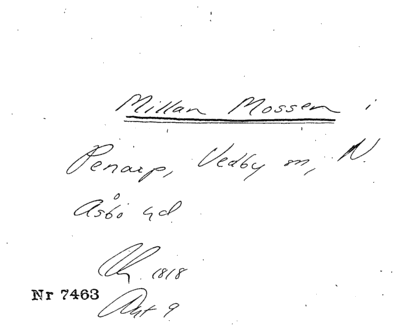 Millan Mossen i
Penarp, Vedby m, N.
Åsbo hd.
1818
Nr 7463
Akt 9